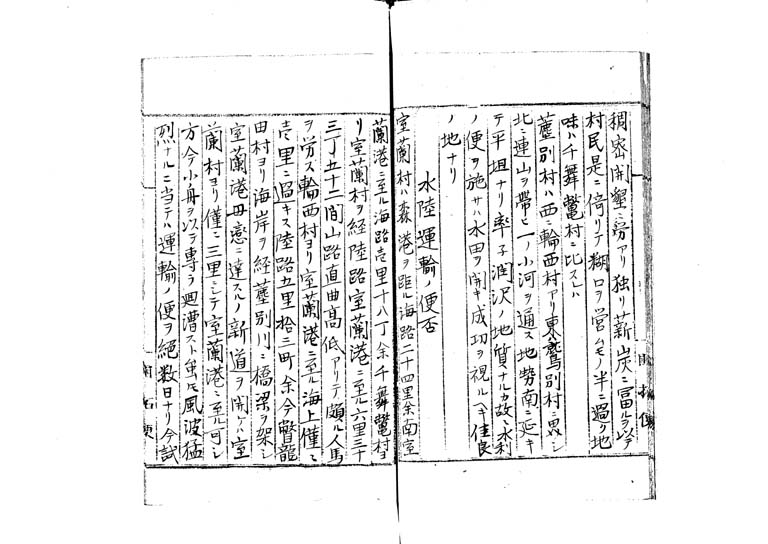 稠密開墾ニ労アリ独リ薪炭ニ富ルヲ以テ
村民是ニ倚リテ糊口ヲ営ムモノ半ニ過ク地
味ハ千舞鼈村ニ比スレハ
蕋別村ハ西ニ輪西村アリ東ハ鷲別村ニ界シ
北ニ連山ヲ帯ヒ一ノ小河ヲ通ス地勢南ニ延キ
テ平坦ナリ率子潤沢ノ地質ナルカ故ニ水利
ノ便ヲ施サハ水田ヲ開キ成功ヲ視ルヘキ佳良
ノ地ナリ
水陸運輸ノ便否
室蘭村ハ森港ヲ距ル海路二十四里余南室
蘭港ニ至ル海路壱里十八丁余千舞鼈村ヨ
リ室蘭村ヲ経陸路室蘭港ニ至ル六里三十
三丁五十二間山路直曲高低アリテ頗ル人馬
ヲ労ス輪西村ヨリ室蘭港ニ至ル海上僅ニ
壱里ニ過キス陸路五里拾三町余今瞥龍
田村ヨリ海岸ヲ経蕋別川ニ橋梁ヲ架シ
室蘭港ニ達スルノ新道ヲ開ケハ室
蘭村ヨリ僅ニ三里ニシテ室蘭港ニ至ル可シ
方今小舟ヲ以テ専ラ廻漕スト雖モ風波猛
烈ナルニ当テハ運輸ノ便ヲ絶数日ナリ今試
開拓使
開拓使